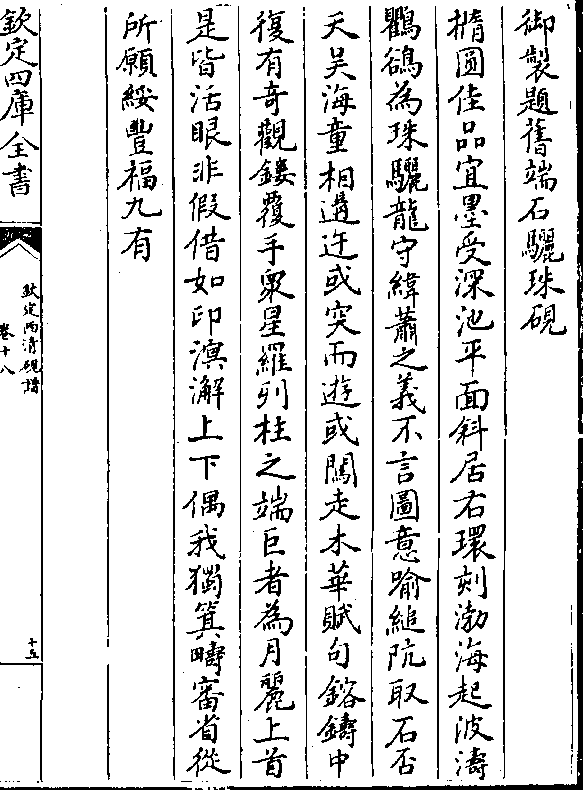 御製題舊端石驪珠硯
橢圓佳品宜墨受深池平面斜居右環刻渤海起波濤
鸜鵒為珠驪龍守緯蕭之義不言圖意喻縋阬取石否
天吴海童相遘迕或突而遊或闖走木華賦句鎔鑄中
復有奇觀鏤覆手衆星羅列柱之端巨者為月麗上首
是皆活眼非假借如印溟澥上下偶我獨箕疇審省從
所願綏豐福九有
欽定四庫全書
欽定西清硯譜
卷十八
十五